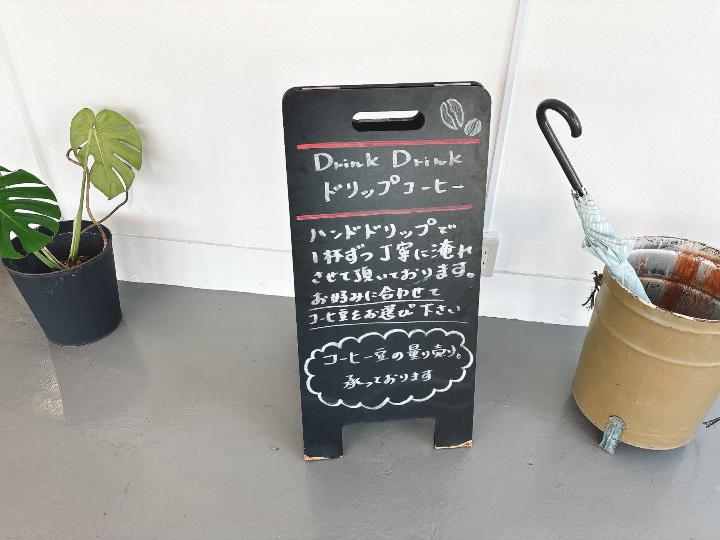 Drink Drink
ドリップコーヒー
ハンドドリップで
1杯ずつ丁寧に淹れ
させて頂いております。
お好みに合わせて
コーヒー豆をお選び下さい
コーヒー豆の量り売り。
承っております